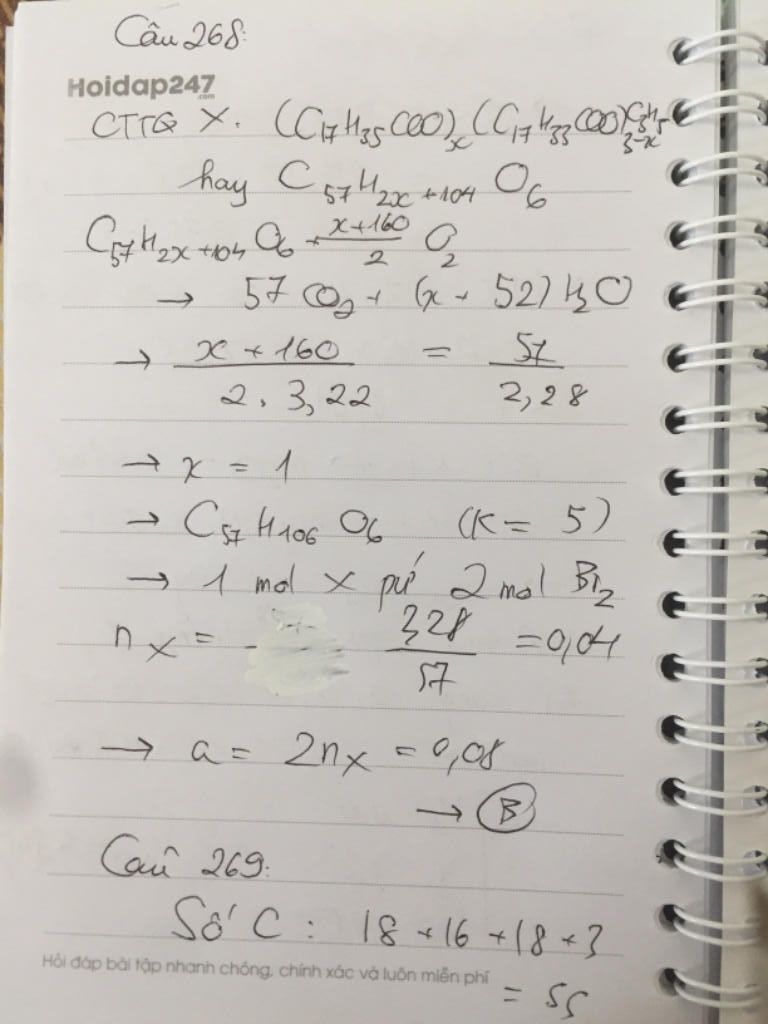 Câu 268:
Hoidap247
.com
CTTQ X. (C17H35COO)x(C17H33COO)3-xC3H5
hay C57H2x+104O6
C57H2x+104O6 + x+160/2 O2
→ 57CO2 + (x+52)H2O
→ x+160/2.3,22 = 57/2,28
→ x = 1
→ C57H106O6 (K = 5)
→ 1 mol X pứ 2 mol Br2
nX = 2,28/57 = 0,04
→ a = 2nX = 0,08
→ B
Câu 269:
Số C: 18+16+18+3
Hỏi đáp bài tập nhanh chóng, chính xác và luôn miễn phí
= 55